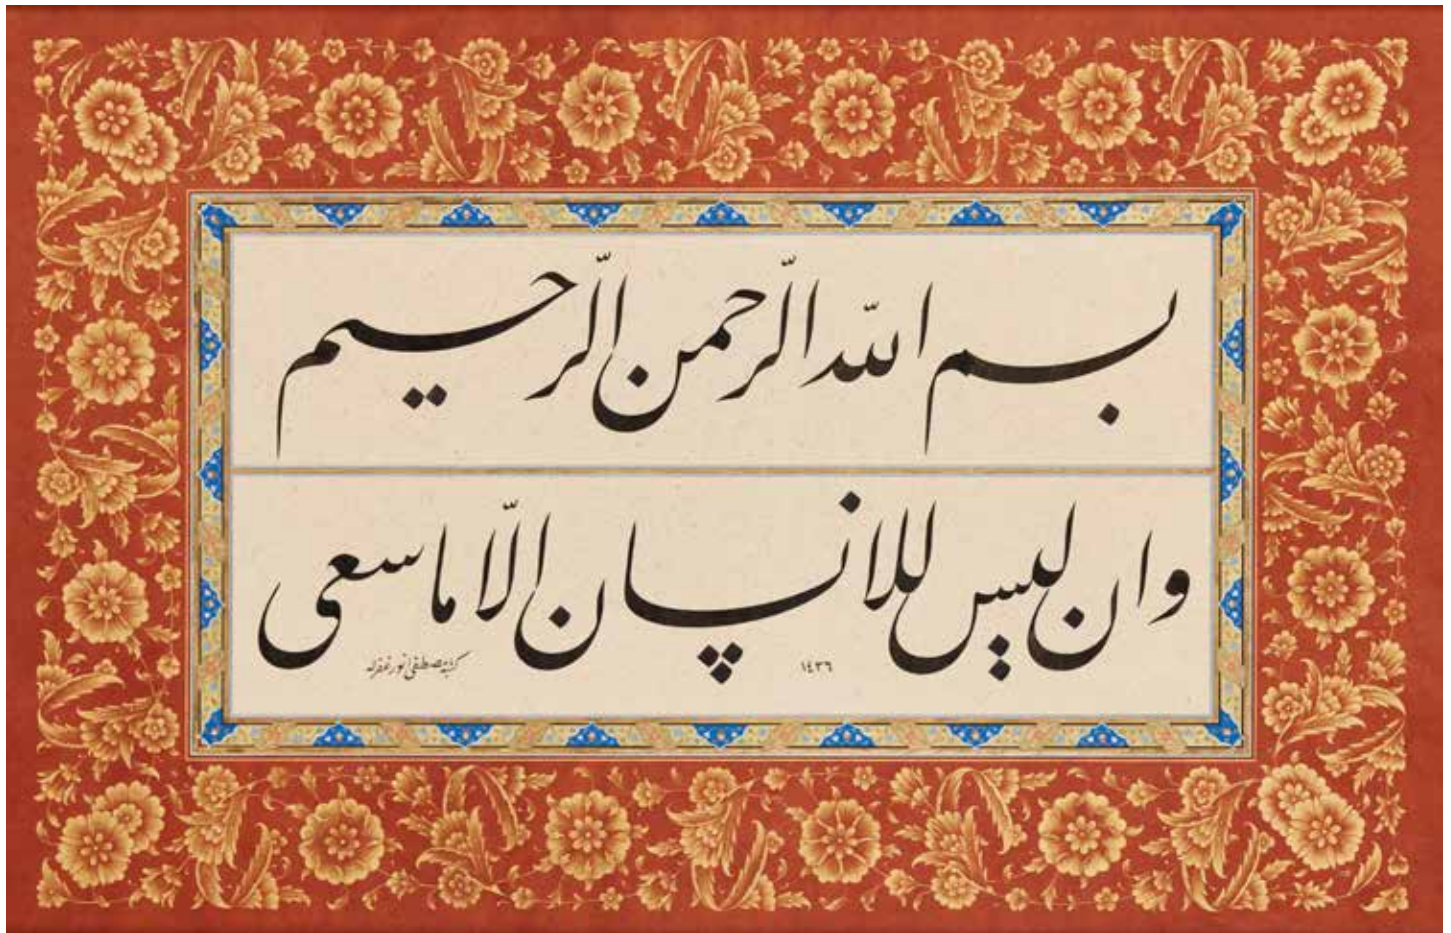 بسم اللّه الرّحمن الرّحيم
وان ليس للانسان الّا ما سعى
١٤٣٦
كتبه مصطفى انور غفر له